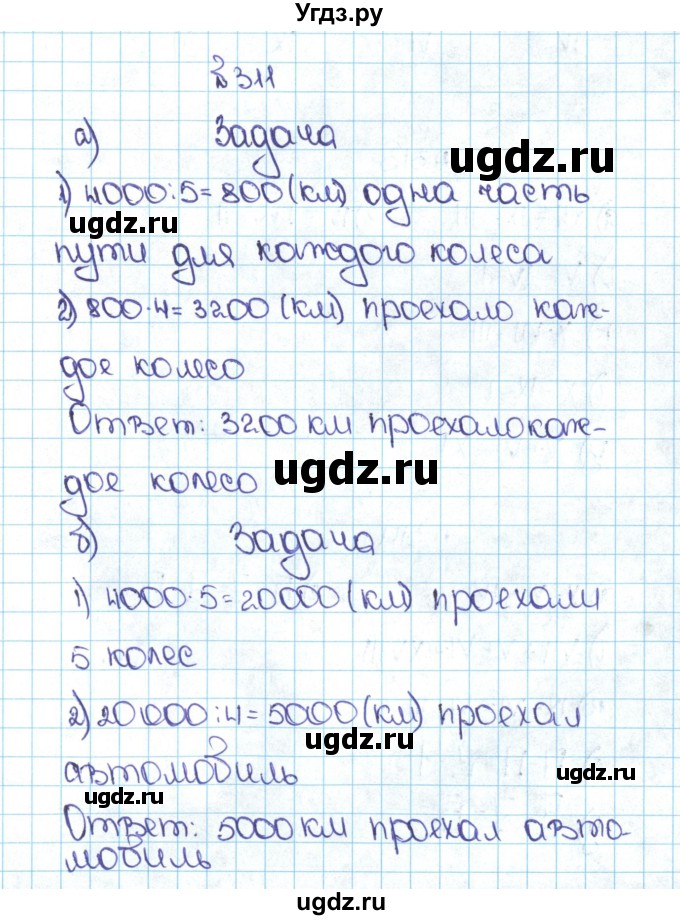 Угдз.ру
№311
а) Задача
ugdz.ru
1) 4000:5=800(км) одна часть
ugdz.ru
пути для каждого колеса
2) 800·4=3200(км) проехало каж-
дое колесо
Ответ: 3200 км проехало каж-
ugdz.ru
дое колесо
б) Задача
1) 4000·5=20000(км) проехали
5 колес
2) 20000:4=5000(км) проехал
ugdz.ru
автомобиль
ugdz.ru
ugdz.ru
Ответ: 5000 км проехал авто-
мобиль
ugdz.ru